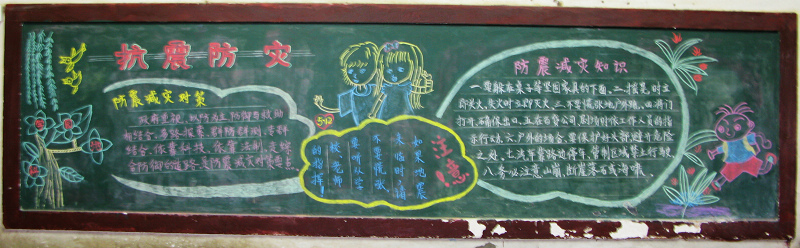 抗震防灾
防震减灾对策
政府重视,以防为主,防御与救助
相结合,专路探索,群防群测,专群
结合,依靠科技,依靠法制,走综
合防御的道路,是防震减灾对策
5·12
注意
如果地震
来临时,请
不要慌张
要听从容
校老师
的指挥
防震减灾知识
一、要躲在桌子等坚固家具的下面,二、摇晃时立
即关火,失火时立即灭火,三、不要慌张地户外跑,四、将门
打开,确保出口,五、在百货公司、剧场时依工作人员的指
示行动,六、户外的场合,要保护好头部,避开危险
之处,七、汽车靠路边停车,管制区域禁止行驶,
八、务必注意山崩、断崖落石或海啸。